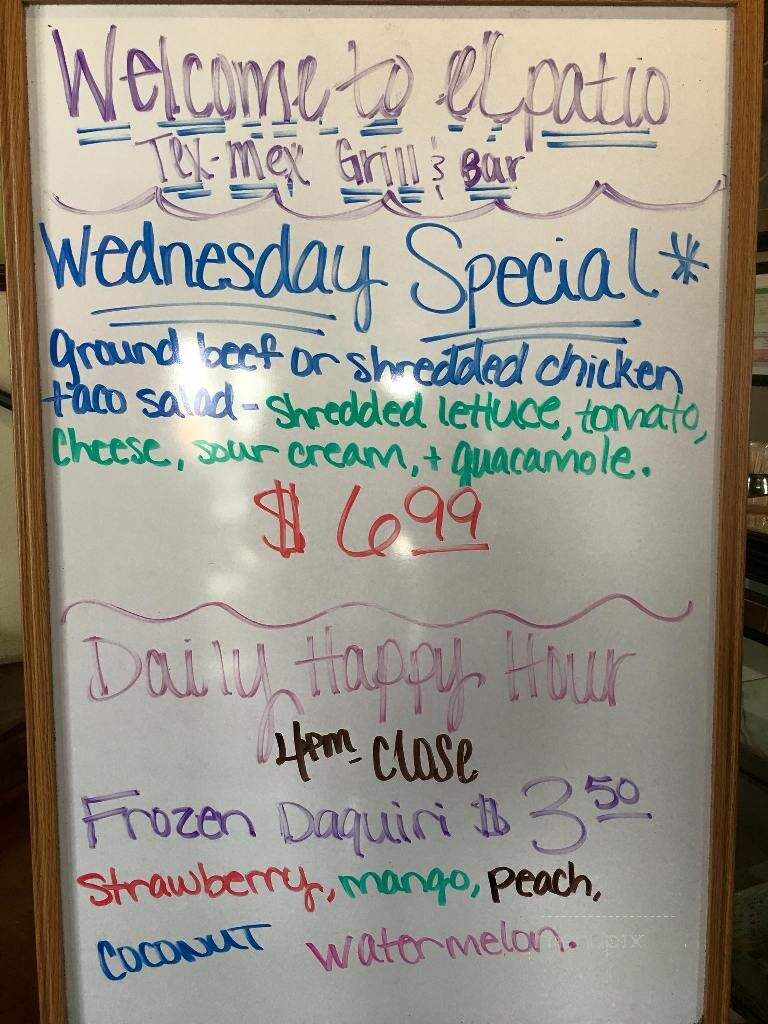 Welcome to el patio
Tex-Mex Grill & Bar
Wednesday Special *
ground beef or shredded chicken
taco salad - shredded lettuce, tomato,
cheese, sour cream, + guacamole.
$ 6 99
Daily Happy Hour
4pm - close
Frozen Daquiri $ 3 50
strawberry, mango, peach,
coconut watermelon.
menupix